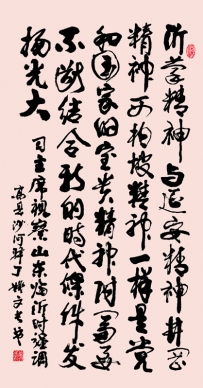 沂蒙精神与延安精神井冈
精神西柏坡精神一样是党
和国家的宝贵精神财富要
不断结合新的时代条件发
扬光大
习主席视察山东临沂时强调
高县沙河驿丁